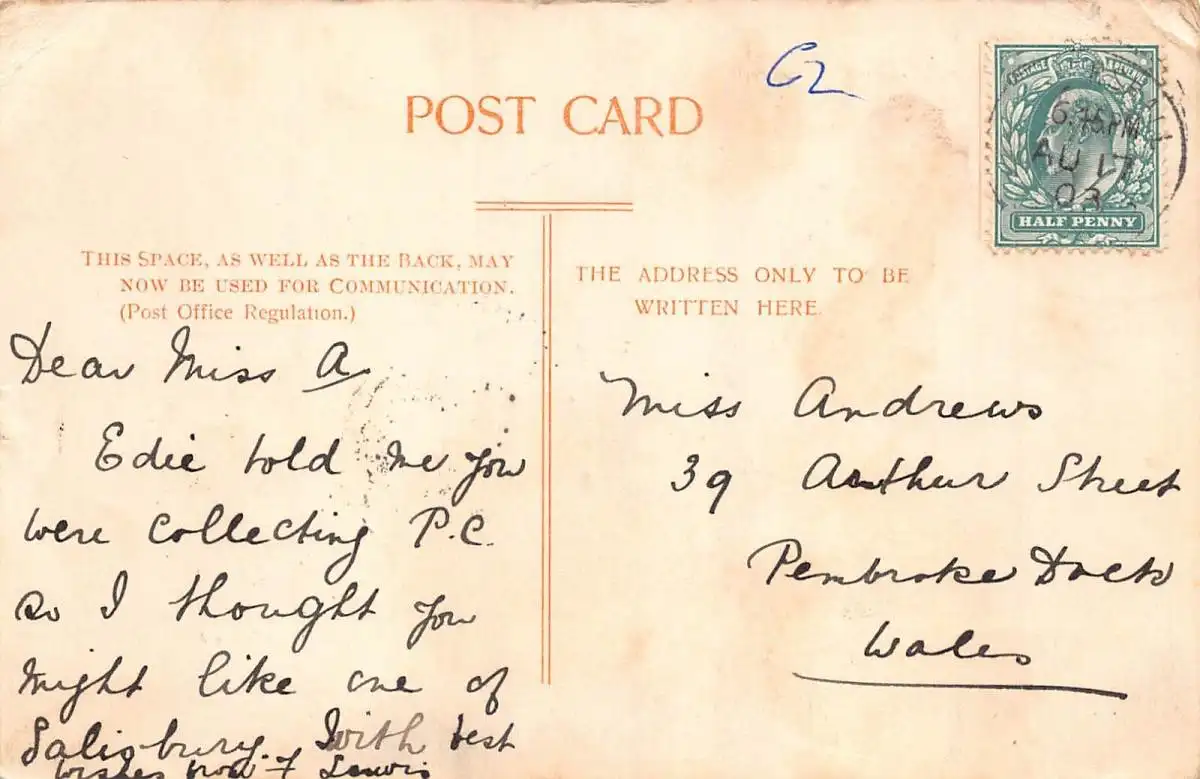 POST CARD
THIS SPACE, AS WELL AS THE BACK, MAY
NOW BE USED FOR COMMUNICATION.
(Post Office Regulation.)
THE ADDRESS ONLY TO BE
WRITTEN HERE.
POSTAGE & REVENUE
6.15 PM
AU 17
03
HALF PENNY
Dear Miss A.
Edie told me you
were collecting P.C.
so I thought you
might like one of
Salisbury. With best
wishes from F
Miss Andrews
39 Arthur Street
Pembroke Dock
Wales